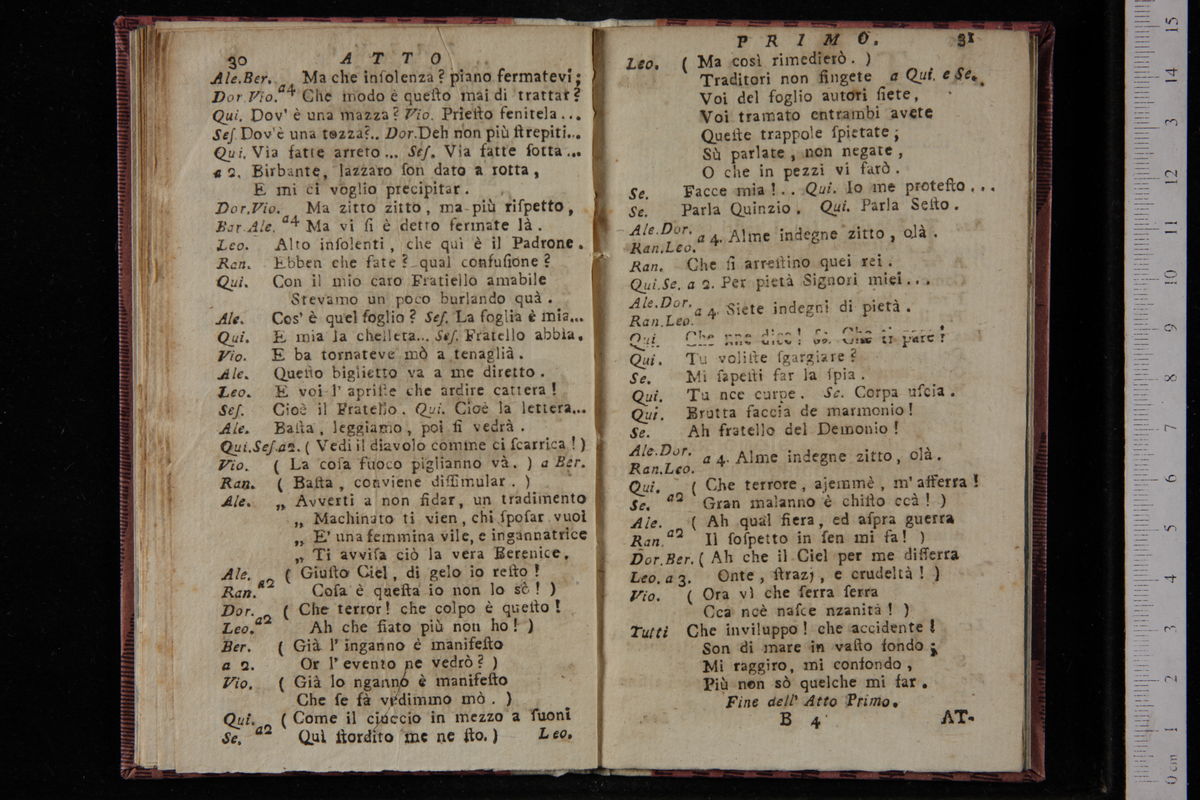 30 ATTO
Ale.Ber. Ma che inſolenza? piano fermatevi;
Dor.Vio. a4 Che modo è queſto mai di trattar?
Qui. Dov' è una mazza? Vio. Prieſto fenitela...
Seſ. Dov'è una tozza?.. Dor. Deh non più ſtrepiti...
Qui. Via fatte arreto... Seſ. Via fatte ſotta...
a 2. Birbante, lazzaro ſon dato a rotta,
E mi ci voglio precipitar.
Dor.Vio. Ma zitto zitto, ma più riſpetto,
Bar.Ale. a4 Ma vi ſi è detto fermate là.
Leo. Alto inſolenti, che quì è il Padrone.
Ran. Ebben che fate? qual confuſione?
Qui. Con il mio caro Fratiello amabile
Stevamo un poco burlando quà.
Ale. Cos' è quel foglio? Seſ. La foglia è mia...
Qui. E mia la chelleta... Seſ. Fratello abbia.
Vio. E ba tornateve mò a tenaglià.
Ale. Queſto biglietto va a me diretto.
Leo. E voi l' apriſte che ardire cattera!
Seſ. Cioè il Fratello. Qui. Cioè la lettera...
Ale. Baſta, leggiamo, poi ſi vedrà.
Qui.Seſ.a2. (Vedi il diavolo comme ci ſcarrica!)
Vio. (La coſa fuoco piglianno và.) a Ber.
Ran. (Baſta, conviene diſſimular.)
Ale. „ Avverti a non fidar, un tradimento
„ Machinato ti vien, chi ſpoſar vuoi
„ E' una femmina vile, e ingannatrice
„ Ti avviſa ciò la vera Berenice.
Ale. a2 (Giuſto Ciel, di gelo io reſto!
Ran. Coſa è queſta io non lo sè!)
Dor. a2 (Che terror! che colpo è queſto!
Leo. Ah che fiato più non ho!)
Ber. (Già l' inganno è manifeſto
a 2. Or l' evento ne vedrò?)
Vio. (Già lo nganno è manifeſto
Che ſe fà vedimmo mò.)
Qui. a2 (Come il ciuccio in mezzo a ſuoni
Se. Quì ſtordito me ne ſto.) Leo.
PRIMO. 31
Leo. (Ma così rimedierò.)
Traditori non fingete a Qui. e Se.
Voi del foglio autori ſiete,
Voi tramato entrambi avete
Queſte trappole ſpietate;
Sù parlate, non negate,
O che in pezzi vi farò.
Se. Facce mia!.. Qui. Io me proteſto...
Se. Parla Quinzio. Qui. Parla Seſto.
Ale.Dor. a 4. Alme indegne zitto, olà.
Ran.Leo.
Ran. Che ſi arreſtino quei rei.
Qui.Se. a 2. Per pietà Signori miei...
Ale.Dor. a 4. Siete indegni di pietà.
Ran.Leo.
Qui. Che nne dice! Se. Che ti pare!
Qui. Tu voliſte ſgargiare?
Se. Mi ſapeſti far la ſpia.
Qui. Tu nce curpe. Se. Corpa uſcia.
Qui. Brutta faccia de marmonio!
Se. Ah fratello del Demonio!
Ale.Dor. a 4. Alme indegne zitto, olà.
Ran.Leo.
Qui. (Che terrore, ajemmè, m' afferra!
Se. a2 Gran malanno è chiſto ccà!)
Ale. (Ah qual fiera, ed aſpra guerra
Ran. a2 Il ſoſpetto in ſen mi fa!)
Dor.Ber. (Ah che il Ciel per me differra
Leo. a 3. Onte, ſtrazj, e crudeltà!)
Vio. (Ora vì che ſerra ſerra
Cca ncè naſce nzanità!)
Tutti Che inviluppo! che accidente!
Son di mare in vaſto fondo;
Mi raggiro, mi confondo,
Più non sò quelche mi far.
Fine dell' Atto Primo.
B 4 AT-